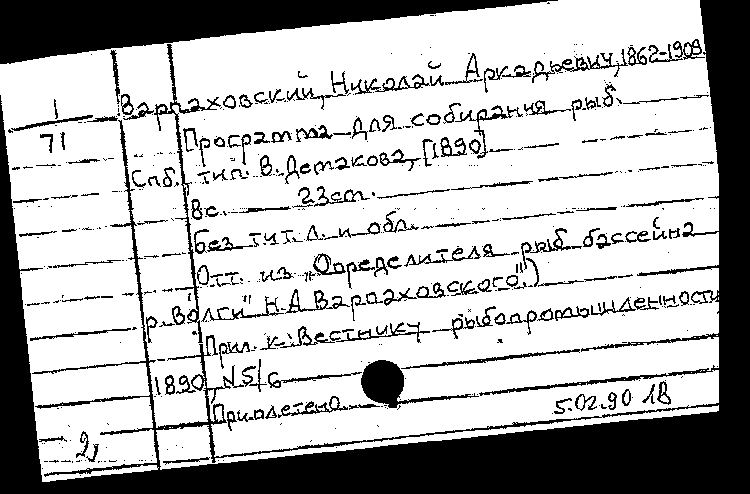 Варпаховский, Николай Аркадьевич, 1862-1909.
1
71
Программа для собирания рыб.
Спб., тип. В. Демакова, [1890].
8с. 23см.
Без тит. л. и обл.
Отт. из „Определителя рыб бассейна
р. Волги" Н.А Варпаховского".)
Прил. к: Вестнику рыбопромышленности,
1890, N5/6
Приплетено
5.02.90 18
2,